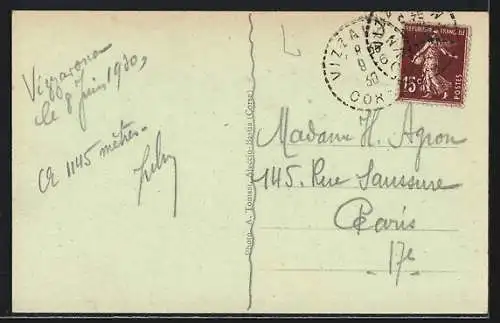 Vizzavona
le 8 Juin 1930,
à 1145 mètres.
Photo A. Tomasi, Ajaccio-Bastia (Corse)
VIZZAVONA
8
6
30
COR
REPUBLIQUE FRANÇAISE
15c
POSTES
Madame H. Agron
145. Rue Saussure
Paris
17e